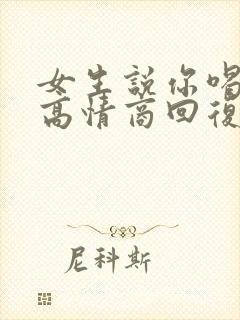 女生説你喝
高情商回復
尼科斯